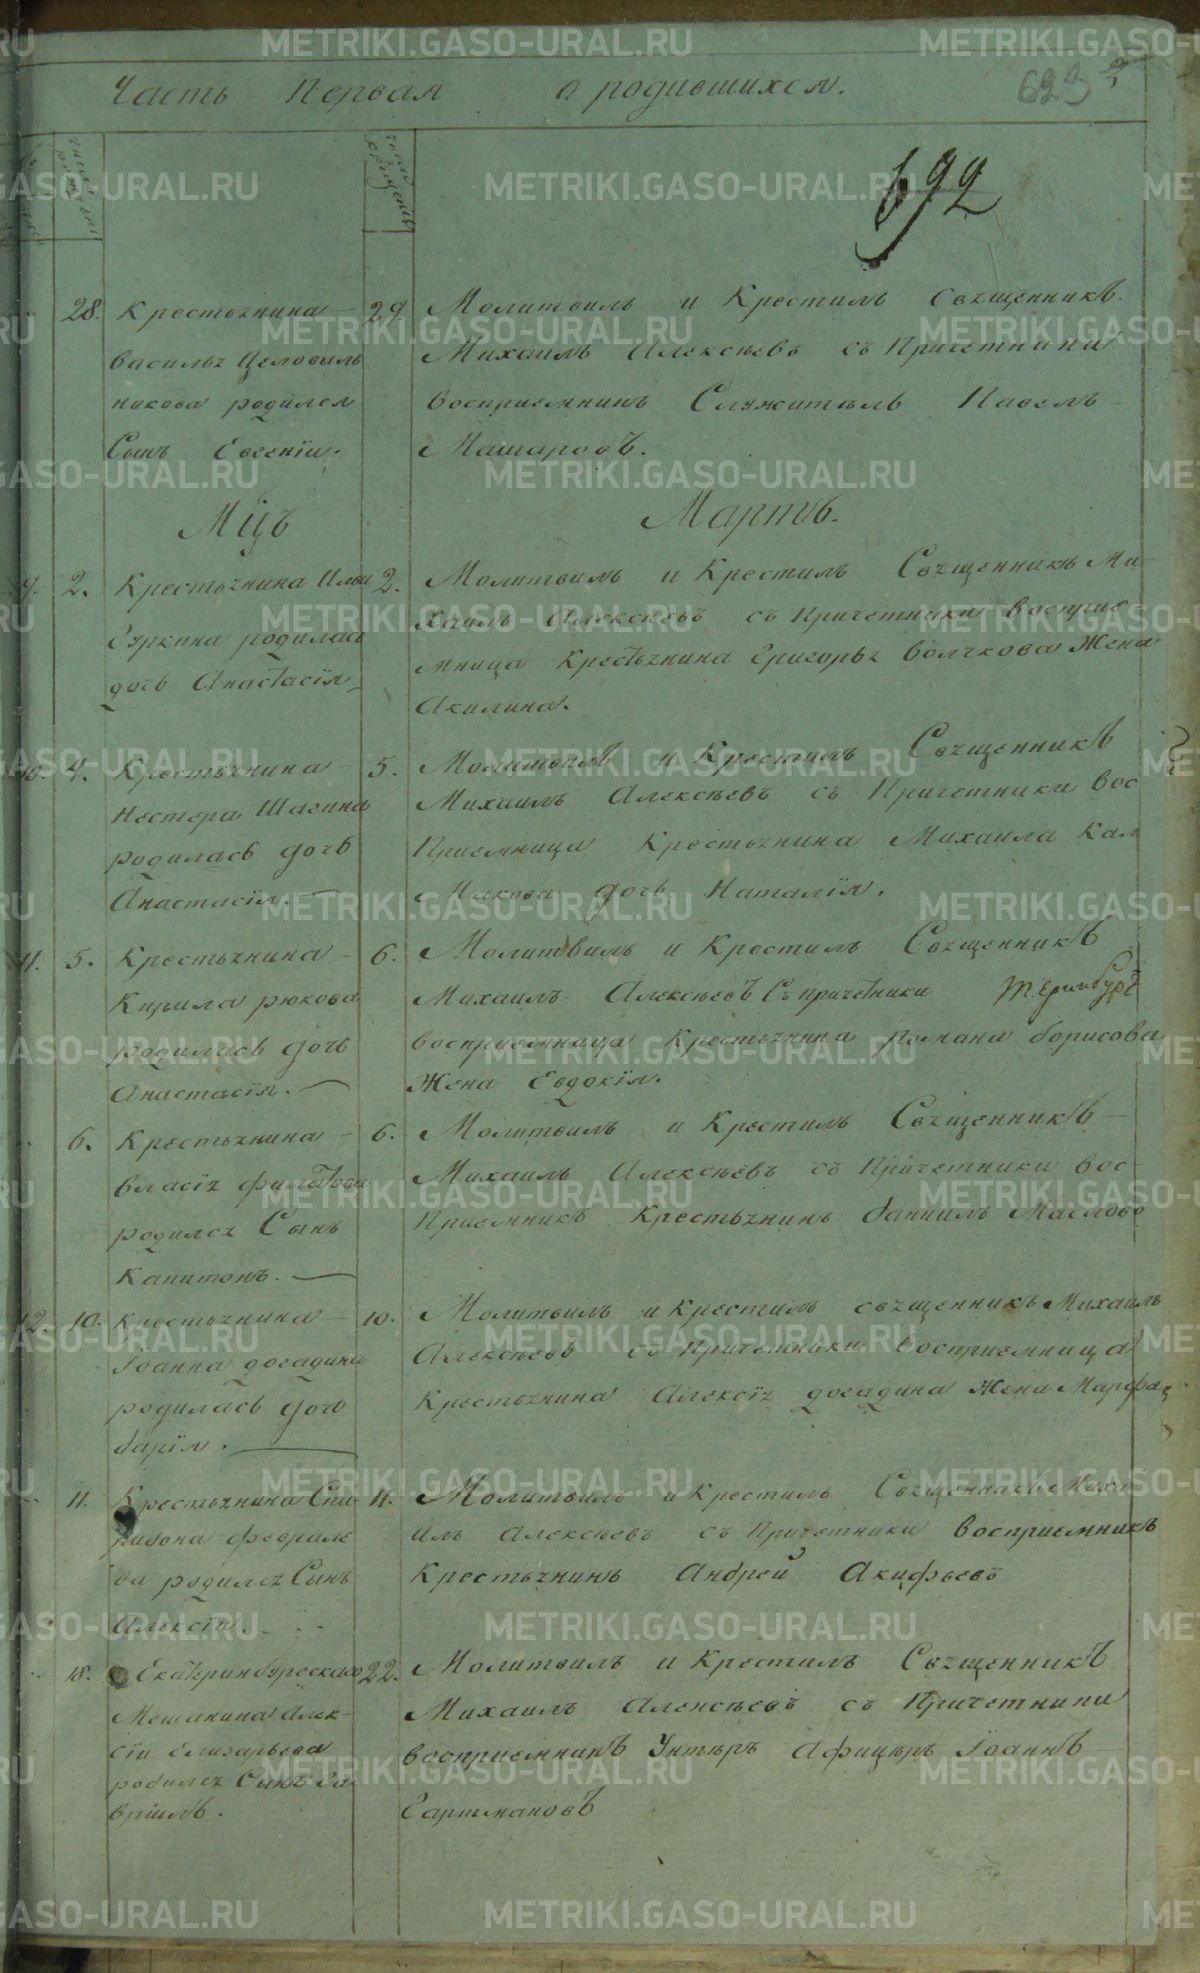 Часть Первая о родившихся.
692
28. Крестьянина
Василья Целоваль
никова родился
Сынъ Евгении.
29. Молитвилъ и Крестилъ Священникъ
Михаилъ Алексѣевъ съ Причетники
восприемникъ Служитель Павелъ
Машаровъ.
Мцъ Мартъ.
9. 2. Крестьянина Ильи
Суркина родилась
дочь Анастасія
2. Молитвилъ и Крестилъ Священникъ Ми
хаилъ Алексѣевъ съ Причетники восприе
мница Крестьянина Григорья Волчкова Жена
Акилина.
10. 4. Крестьянина
Нестера Шагина
родилась дочь
Анастасія.
5. Молитвилъ и Крестилъ Священникъ
Михаилъ Алексѣевъ съ Причетники вос
Приемница Крестьянина Михаила Кал
Макова дочь Наталія.
11. 5. Крестьянина
Кирила рюкова
родилась дочь
Анастасія.
6. Молитвилъ и Крестилъ Священникъ
Михаилъ Алексѣевъ Съ причетники
восприемница Крестьянина романа борисова
Жена Евдокія.
6. Крестьянина
власія филатова
родился Сынъ
Капитонъ.
6. Молитвилъ и Крестилъ Священникъ
Михаилъ Алексѣевъ съ Причетники вос
Приемникъ Крестьянинъ даниилъ Масловъ
12. 10. Крестьянина
Іоанна догадина
родилась дочь
дарія.
10. Молитвилъ и Крестилъ священникъ Михаилъ
Алексѣевъ съ Причетники восприемница
Крестьянина Алексія догадина Жена Марфа
11. Крестьянина Спи
ридона февралe
ва родился Сынъ
Алексіи.
11. Молитвилъ и Крестилъ Священникъ Миха
илъ Алексѣевъ съ Причетники восприемникъ
Крестьянинъ Андрей Акифьевъ
18. Екатеринбургскаго
Мещанина Алек-
сіи Елизарьева
родился Сынъ Га
вріилъ.
22. Молитвилъ и Крестилъ Священникъ
Михаилъ Алексѣевъ съ Причетники
восприемникъ Унтеръ Афицеръ Іоаннъ
Гартмановъ
METRIKI.GASO-URAL.RU